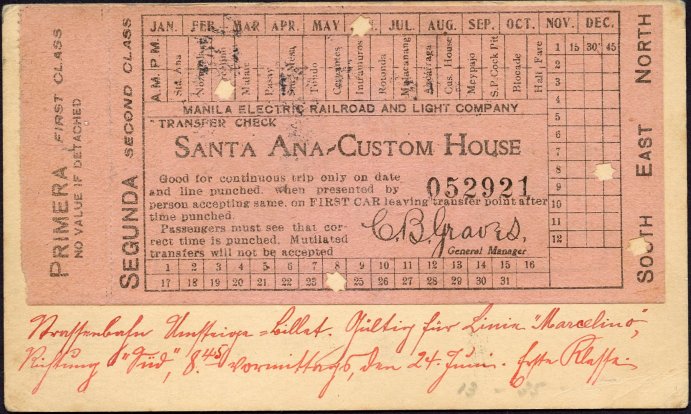 PRIMERA FIRST CLASS
NO VALUE IF DETACHED
SEGUNDA SECOND CLASS
JAN. FEB. MAR APR. MAY JUL. AUG. SEP. OCT. NOV. DEC.
A.M. P.M.
Sta. Ana
Malate
Pasay
Tondo
Cervantes
Intramuros
Rotonda
Malacanang
Azcarraga
Cus. House
Meypajo
S.P. Cock Pit
Blocade
Half Fare
1 15 30 45
2
3
4
5
6
7
8
9
10
11
12
MANILA ELECTRIC RAILROAD AND LIGHT COMPANY
TRANSFER CHECK
SANTA ANA-CUSTOM HOUSE
Good for continuous trip only on date
and line punched, when presented by
052921
person accepting same, on FIRST CAR leaving transfer point after
time punched.
Passengers must see that cor-
rect time is punched. Mutilated
transfers will not be accepted
C.B. Graves.
General Manager
1 2 3 4 5 6 7 8 9 10 11 12 13 14 15 16
17 18 19 20 21 22 23 25 26 27 28 29 30 31
SOUTH EAST NORTH
Strassenbahn Umsteige-Billet. Gültig für Linie "Marcelino",
Richtung "Süd", 8 45 vormittags, den 24. Juni. Erste Klasse.